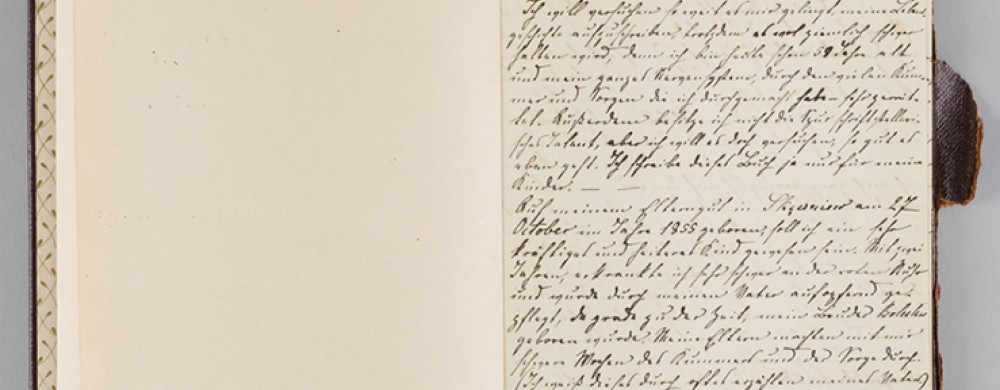 Ich will versuchen so weit es mir gelingt, meine Lebens-
geschichte aufzuschreiben, trotzdem es wol ziemlich schwer
halten wird, denn ich bin heute schon 58 Jahre alt
und mein ganzes Nervensystem, durch den vielen Kum-
mer und Sorgen die ich durchgemacht habe – sehr zerrüt-
tet. Außerdem besitze ich nicht die Spur schriftstelleri-
sches Talent, aber ich will es doch versuchen, so gut es
eben geht. Ich schreibe dieses Buch ja nur für meine
Kinder. — —
Auf meinem Elterngut in am 27
October im Jahre 1855 geboren, soll ich ein sehr
kräftiges und heiteres Kind gewesen sein. Mit zwei
Jahren, erkrankte ich sehr schwer an der roten Ruhr
und wurde durch meinen Vater aufopfernd ge-
pflegt, da grade zu der Zeit, mein Bruder
geboren wurde. Meine Eltern machten mit mir
schwere Wochen des Kummers und der Sorge durch.
(Ich weiß dieses durch oftes erzählen meines Vaters)